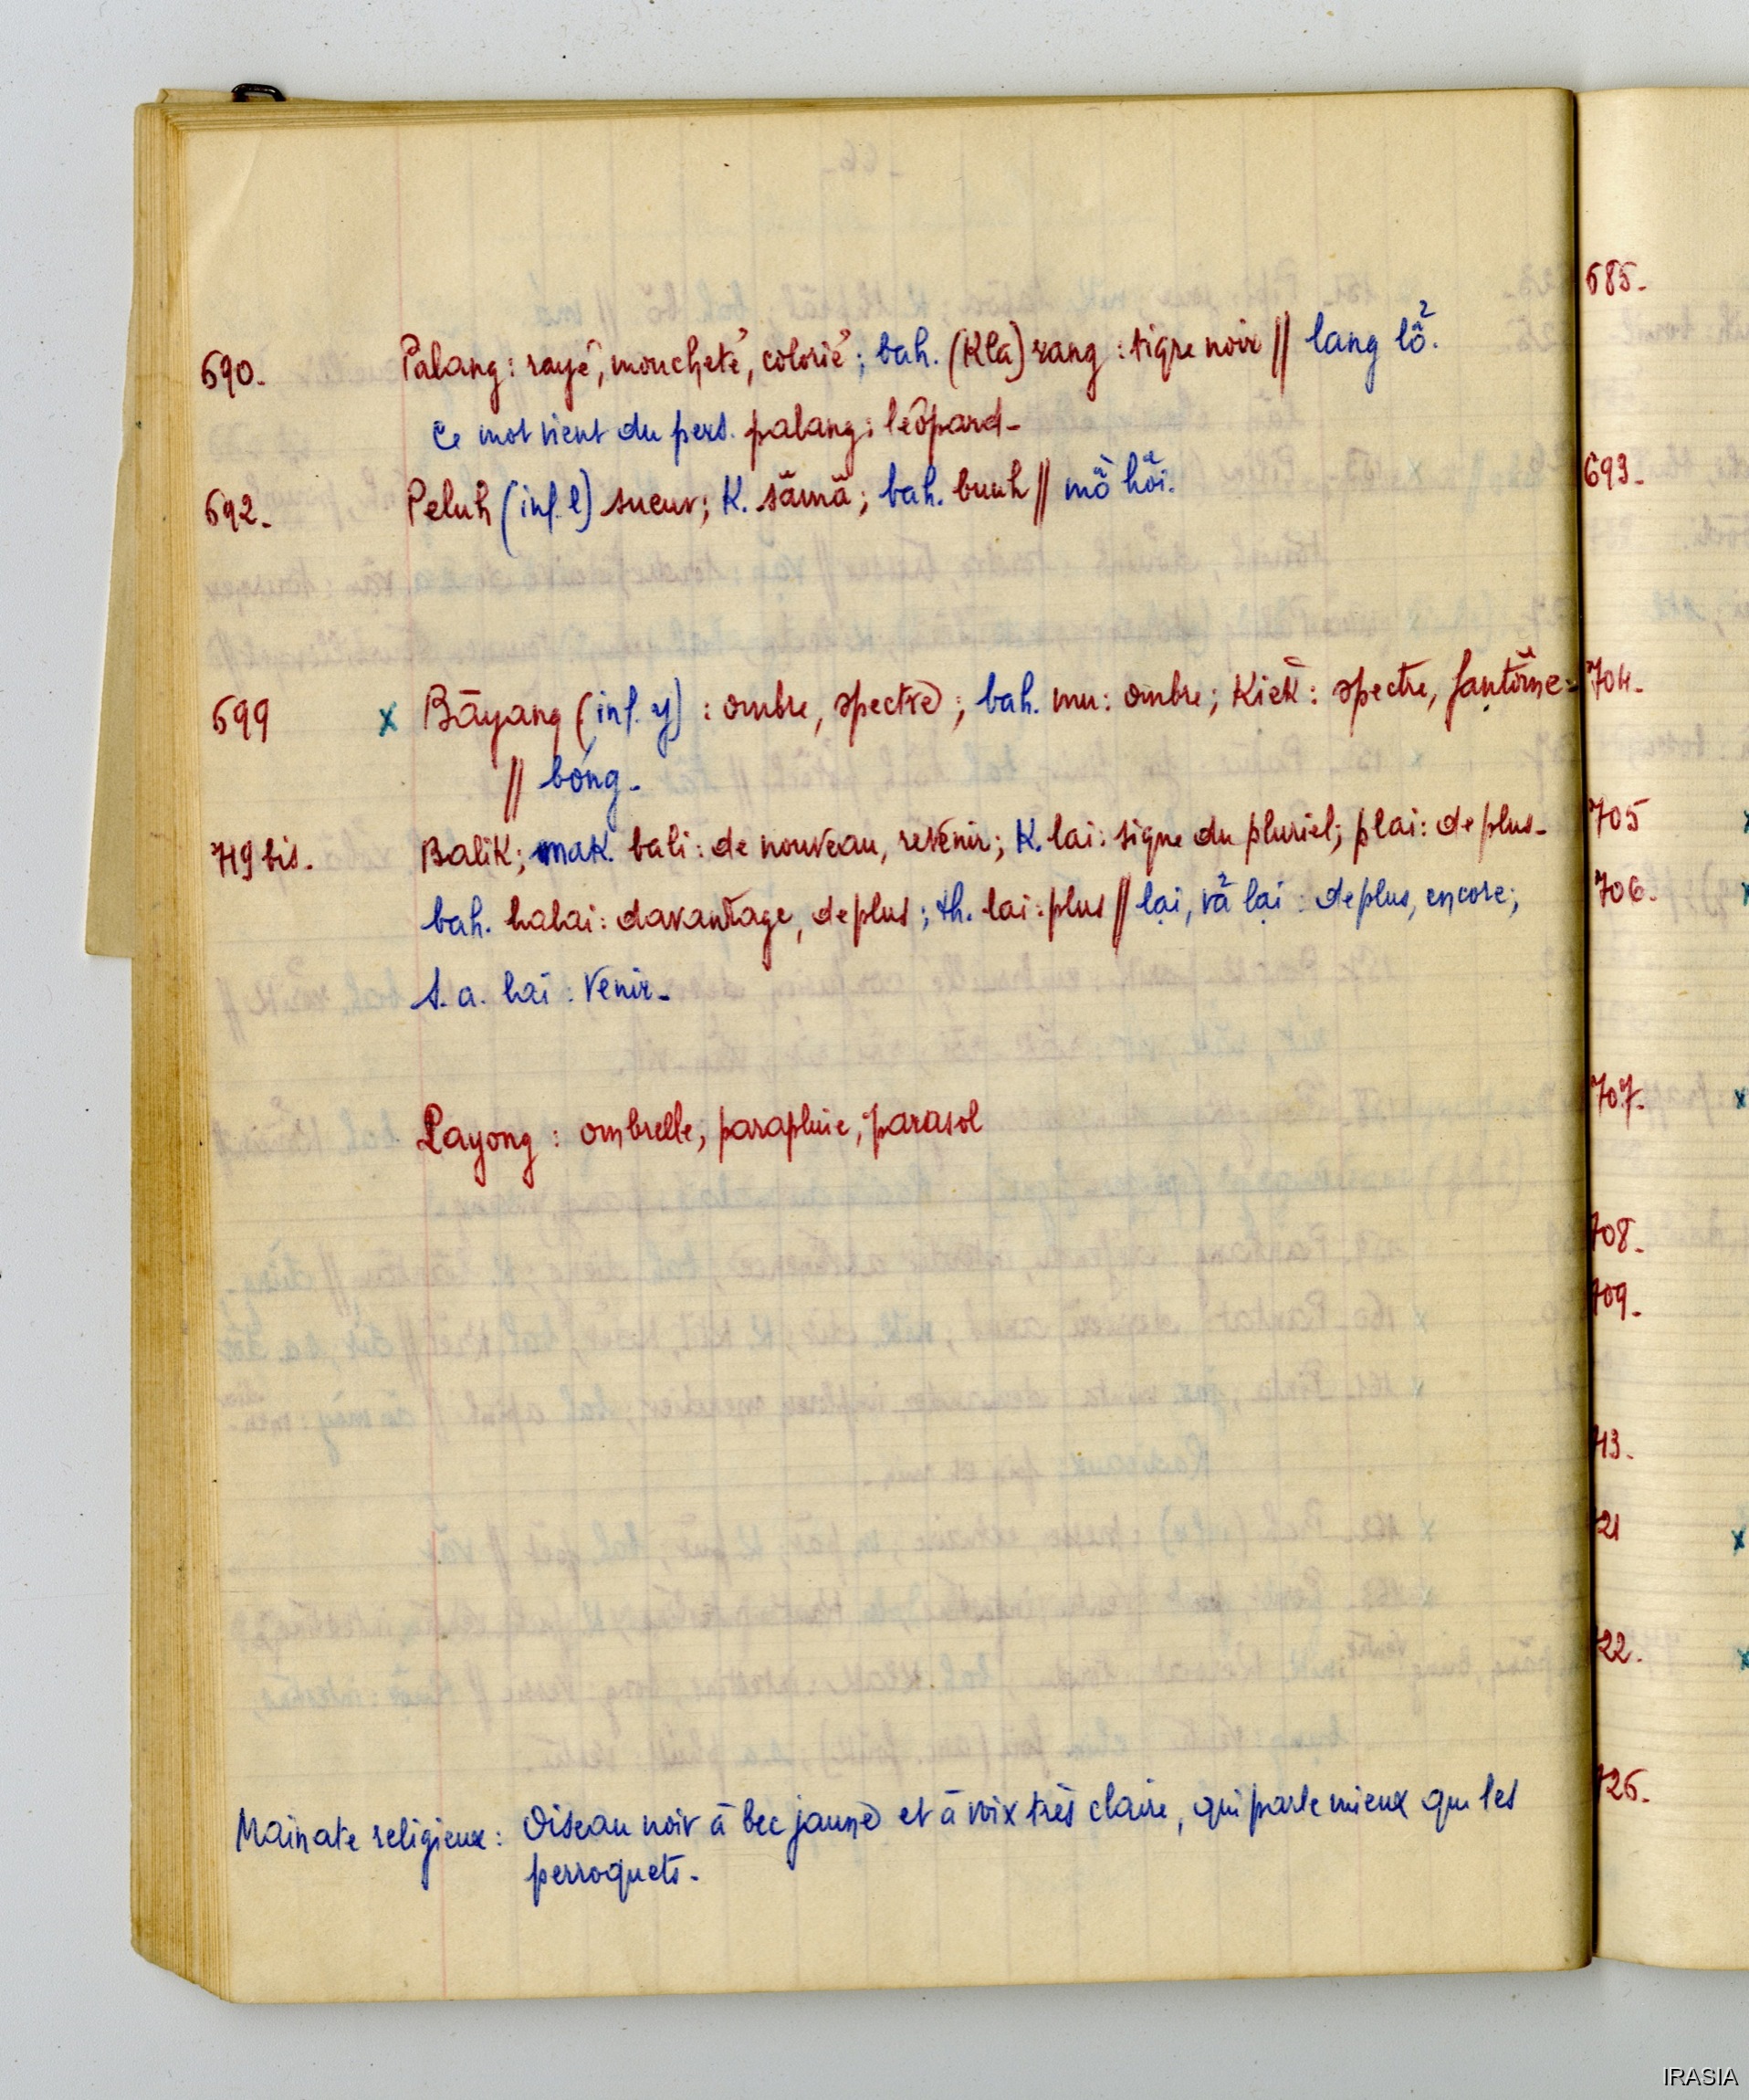 690. Palang: rayé, moucheté, colorié; bah. (Kla) rang: tigre noir // lang lổ.
Ce mot vient du pers. palang: léopard-
692. Peluh (inf. l) sueur; K. sämä; bah. buuh // mồ hôi.
699 x Bāyang (inf. y): ombre, spectre; bah. mu: ombre; Kiek: spectre, fantôme-
// bóng-
719 bis. Balik; mak. bali: de nouveau, revenir; K. lai: signe du pluriel; plai: de plus-
bah. halai: davantage, de plus; th. lai: plus // lại, vả lại: de plus, encore;
s.a. lai: venir-
Payong: ombrelle, parapluie, parasol
Mainate religieux: Oiseau noir à bec jaune et à voix très claire, qui parle mieux que les
perroquets-
685-
693-
704-
705
706-
707-
708-
709-
713-
721
722-
725-
IRASIA